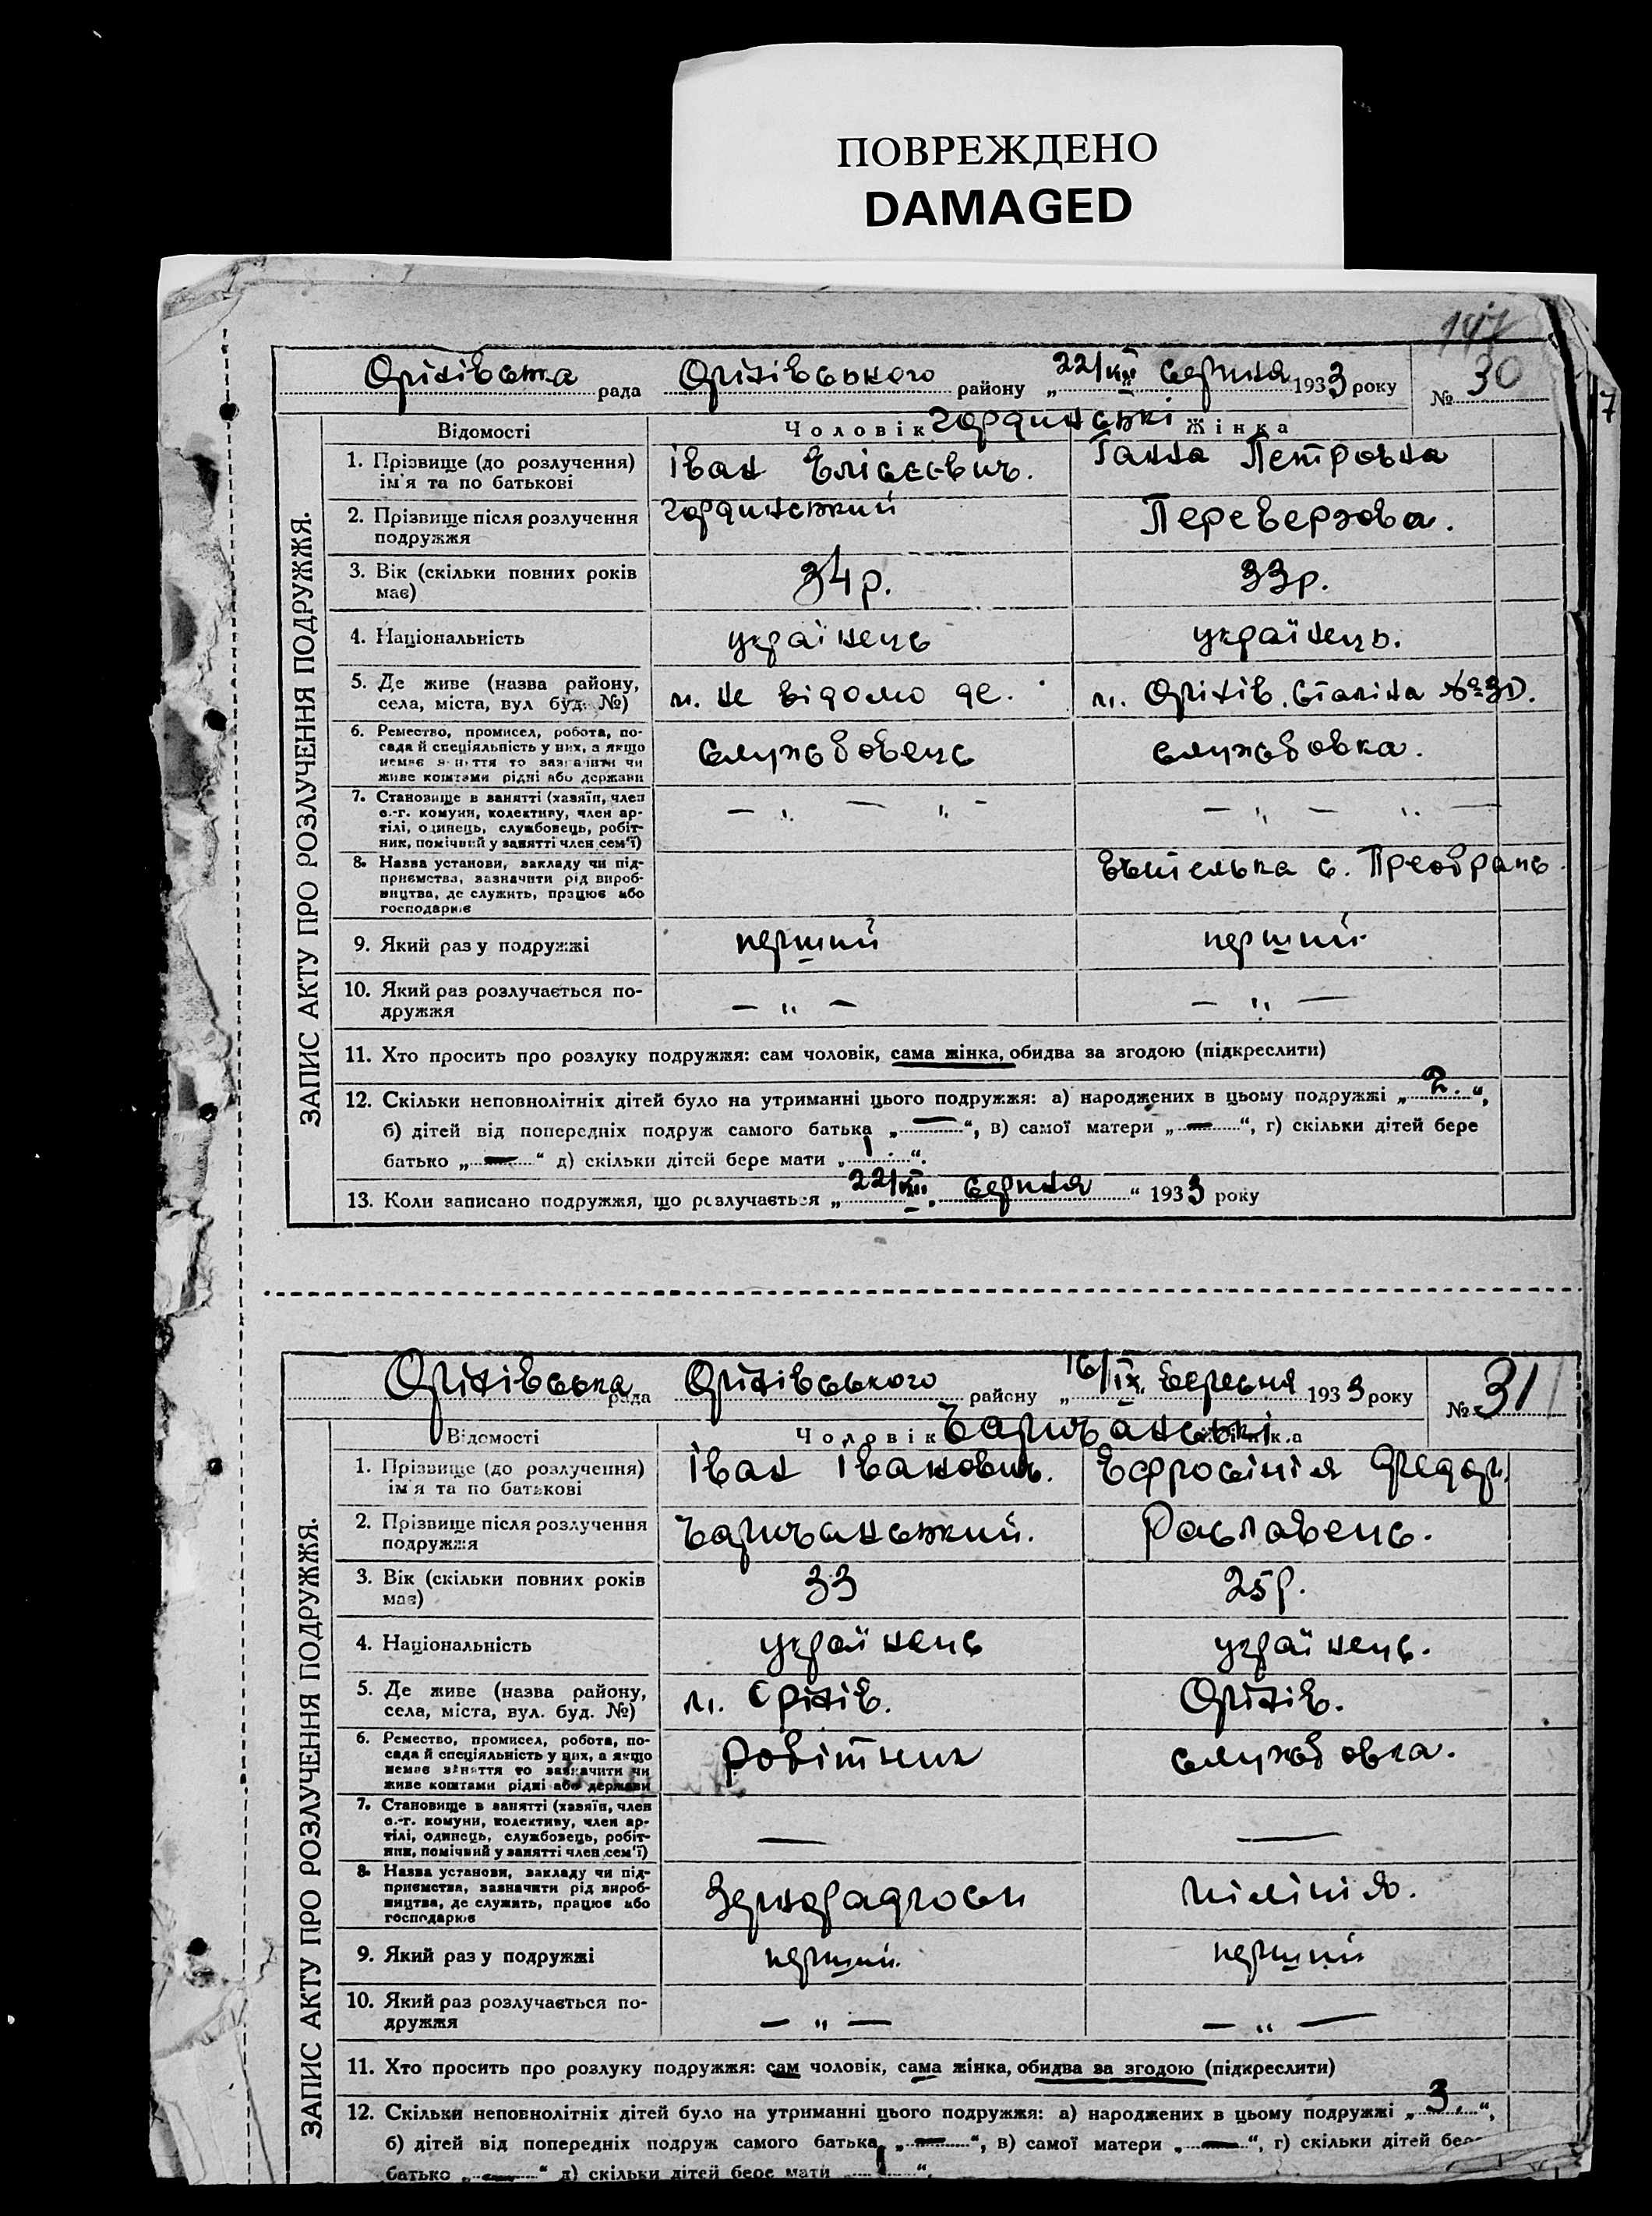 ПОВРЕЖДЕНО
DAMAGED
147
Оріхівська рада Оріхівського району „22/VIII серпня 1933 року № 30
ЗАПИС АКТУ ПРО РОЗЛУЧЕННЯ ПОДРУЖЖЯ.
Відомості Чоловік Гординські Жінка
1. Прізвище (до розлучення) ім'я та по батькові Іван Єлісеєвич. Ганна Петровна
2. Прізвище після розлучення подружжя Гординський Переверзова.
3. Вік (скільки повних років має) 34 р. 33 р.
4. Національність українець українець.
5. Де живе (назва району, села, міста, вул буд. №) м. не відомо де. м. Оріхів. Сталіна №
6. Ремество, промисел, робота, посада й спеціяльність у них, а якщо немає заняття то зазначити чи живе коштами рідні або держави службовець службовка.
7. Становище в занятті (хазяїн, член с.-г. комуни, колективу, член артілі, одинець, службовець, робітник, помічний у занятті член сем'ї) — „ — „ — — „ — „ —
8. Назва установи, закладу чи підприємства, зазначити рід виробництва, де служить, працює або господарює вчителька с. Преображ.
9. Який раз у подружжі перший перший
10. Який раз розлучається подружжя — „ — — „ —
11. Хто просить про розлуку подружжя: сам чоловік, сама жінка, обидва за згодою (підкреслити)
12. Скільки неповнолітніх дітей було на утриманні цього подружжя: а) народжених в цьому подружжі „ 2. “,
б) дітей від попередніх подруж самого батька „ — “, в) самої матери „ — “, г) скільки дітей бере
батько „ — “ д) скільки дітей бере мати „ 1 “.
13. Коли записано подружжя, що розлучається „ 22/VIII „ серпня “ 1933 року
Оріхівська рада Оріхівського району „16/IX. вересня 1933 року № 31
ЗАПИС АКТУ ПРО РОЗЛУЧЕННЯ ПОДРУЖЖЯ.
Відомості Чоловік Жінка
1. Прізвище (до розлучення) ім'я та по батькові Іван Іванович. Ефросінія Федор.
2. Прізвище після розлучення подружжя
3. Вік (скільки повних років має) 33 25 р.
4. Національність українець українець.
5. Де живе (назва району, села, міста, вул. буд. №) м. Оріхів. Оріхів.
6. Ремество, промисел, робота, посада й спеціяльність у них, а якщо немає заняття то зазначити чи живе коштами рідні або держави робітник службовка.
7. Становище в занятті (хазяїн, член с.-г. комуни, колективу, член артілі, одинець, службовець, робітник, помічний у занятті член сем'ї) — —
8. Назва установи, закладу чи підприємства, зазначити рід виробництва, де служить, працює або господарює Зернорадгосп міліція.
9. Який раз у подружжі перший. перший
10. Який раз розлучається подружжя — „ — — „ —
11. Хто просить про розлуку подружжя: сам чоловік, сама жінка, обидва за згодою (підкреслити)
12. Скільки неповнолітніх дітей було на утриманні цього подружжя: а) народжених в цьому подружжі „ 3. “,
б) дітей від попередніх подруж самого батька „ — “, в) самої матери „ — “, г) скільки дітей бере
батько „ — “ д) скільки дітей бере мати „ 1 “.